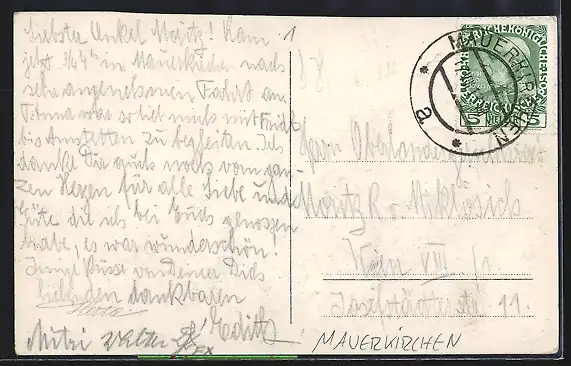 Liebster Onkel Moritz! Kam
jetzt 3/4 4h in Mauerkirchen nach
sehr angenehmen Fahrt an.
war so lieb mich mit
bis Amstetten zu begleiten. Ich
danke Dir auch noch vom gan-
zen Herzen für alle Liebe und
Güte die ich bei Euch genossen
habe, es war wunderschön.
Innige Küsse von Deiner Dich
liebenden dankbaren
Edith
Mitzi
MAUERKIRCHEN
a
5 5
Herrn Oberlandesgerichtsrat
Moritz R. v. Miklosich
Wien VIII/1
Josefstädterstr. 11.
MAUERKIRCHEN